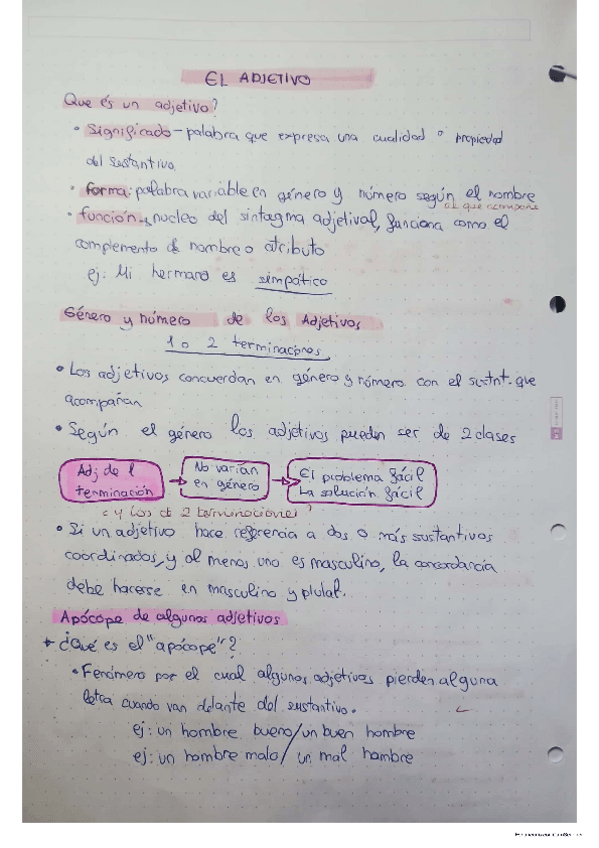 EL ADJETIVO
Que és un adjetivo?
• Significado - palabra que expresa una cualidad o propiedad
del sustantivo
• forma: palabra variable en género y número según el nombre
al que acompaña
• función ↳ nucleo del sintagma adjetival, funciona como el
complemento de nombre o atributo
ej: Mi hermano es simpático
Género y número de los Adjetivos
1 o 2 terminaciones
• Los adjetivos concuerdan en género y número con el sustnt. que
acompañan
• Según el género los adjetivos pueden ser de 2 clases
Adj de 1 terminación → No varían en género → El problema fácil La solución fácil
¿y los de 2 terminaciones?
• Si un adjetivo hace referencia a dos o más sustantivos
coordinados, y al menos uno es masculino, la concordancia
debe hacerse en masculino y plural.
Apócope de algunos adjetivos
¿Qué es el "apócope"?
• Fenómero por el cual algunos adjetivos pierden alguna
letra cuando van delante del sustantivo.
ej: un hombre bueno/un buen hombre
ej: un hombre malo/ un mal hombre